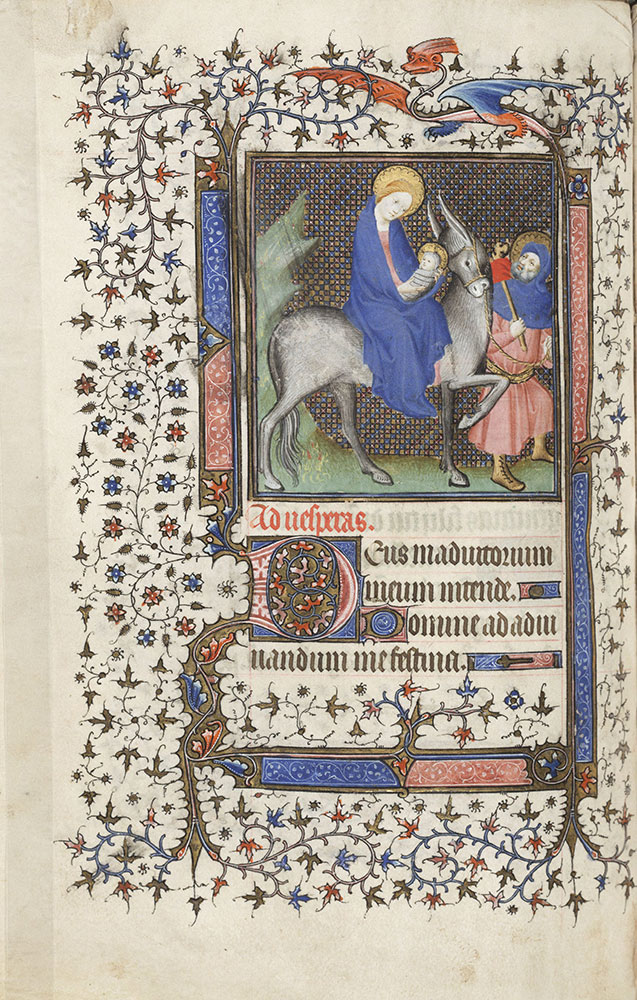 Ad vesperas.
Deus in adiutorium
meum intende.
Domine ad adiu
uandum me festina.